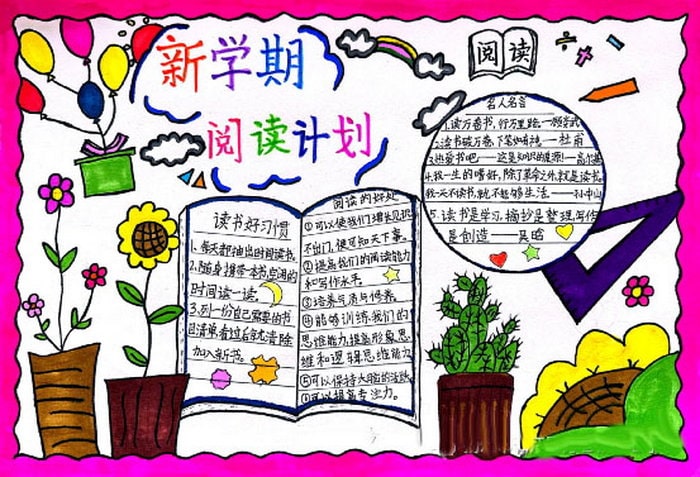 新学期
阅读计划
阅读
名人名言
1.读万卷书,行万里路。——顾炎武
2.读书破万卷,下笔如有神。——杜甫
3.热爱书吧——这是知识的泉源!—高尔基
4.我一生的嗜好,除了革命之外,就是读书,
我一天不读书,就不能够生活——孙中山
5.读书是学习,摘抄是整理,写作
是创造——吴晗
读书好习惯
1.每天都抽出时间读书。
2.随身携带一本书,空闲的
时间读一读。
3.列一份自己需要的书
目清单,看过后就清除
加入新书。
阅读的好处
①可以使我们增长见识
不出门,便可知天下事。
②提高我们的阅读能力
和写作水平。
③培养气质与修养。
④能够训练我们的
思维能力,提高形象思
维和逻辑思维能力
⑤可以保持大脑的活跃
⑥可以提高专注力。